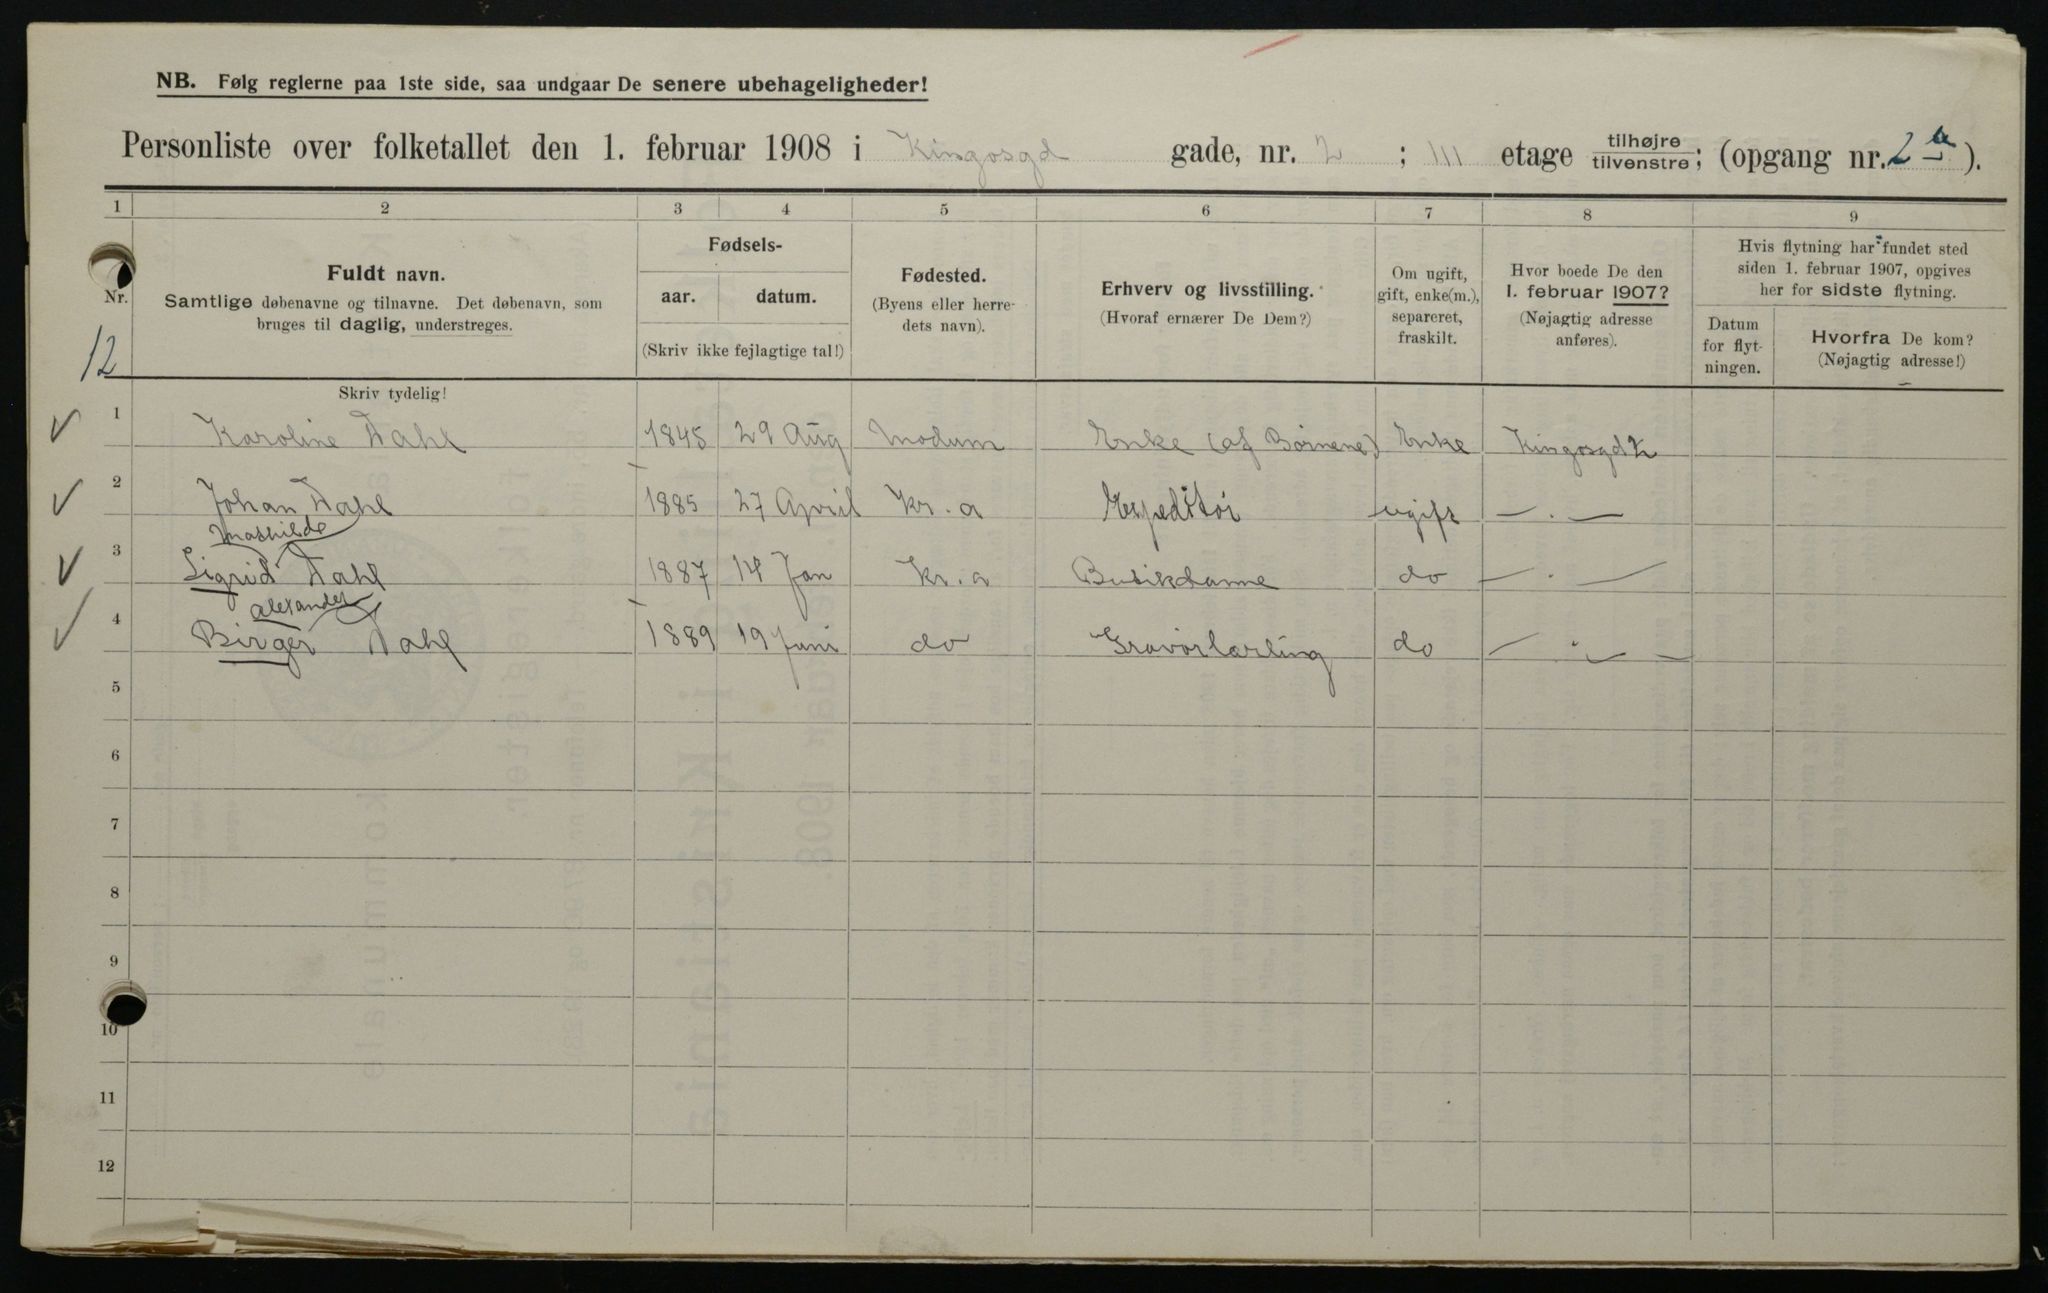 NB. Følg reglerne paa 1ste side, saa undgaar De senere ubehageligheder!
Personliste over folketallet den 1. februar 1908 i Kingosgd gade, nr. 2 ; III etage tilhøjre tilvenstre; (opgang nr. 2 a ).
1 2 3 4 5 6 7 8 9
Nr.
12
Fuldt navn.
Samtlige døbenavne og tilnavne. Det døbenavn, som
bruges til daglig, understreges.
Skriv tydelig!
Fødsels-
aar. datum.
(Skriv ikke fejlagtige tal!)
Fødested.
(Byens eller herre-
dets navn).
Erhverv og livsstilling.
(Hvoraf ernærer De Dem?)
Om ugift,
gift, enke(m.),
separeret,
fraskilt.
Hvor boede De den
1. februar 1907?
(Nøjagtig adresse
anføres).
Hvis flytning har fundet sted
siden 1. februar 1907, opgives
her for sidste flytning.
Datum
for flyt-
ningen.
Hvorfra De kom?
(Nøjagtig adresse!)
1 Karoline Dahl 1845 29 Aug Modum Enke (af Børnene) Enke Kingosgd 2
2 Johan Dahl 1885 27 April Kr. a Expeditør ugift — . —
Mathilde
3 Sigrid Dahl 1887 14 Jan Kr. a Butikdame do — . —
Alexander
4 Birger Dahl 1889 19 Juni do Gravørlærling do — " —
5
6
7
8
9
10
11
12